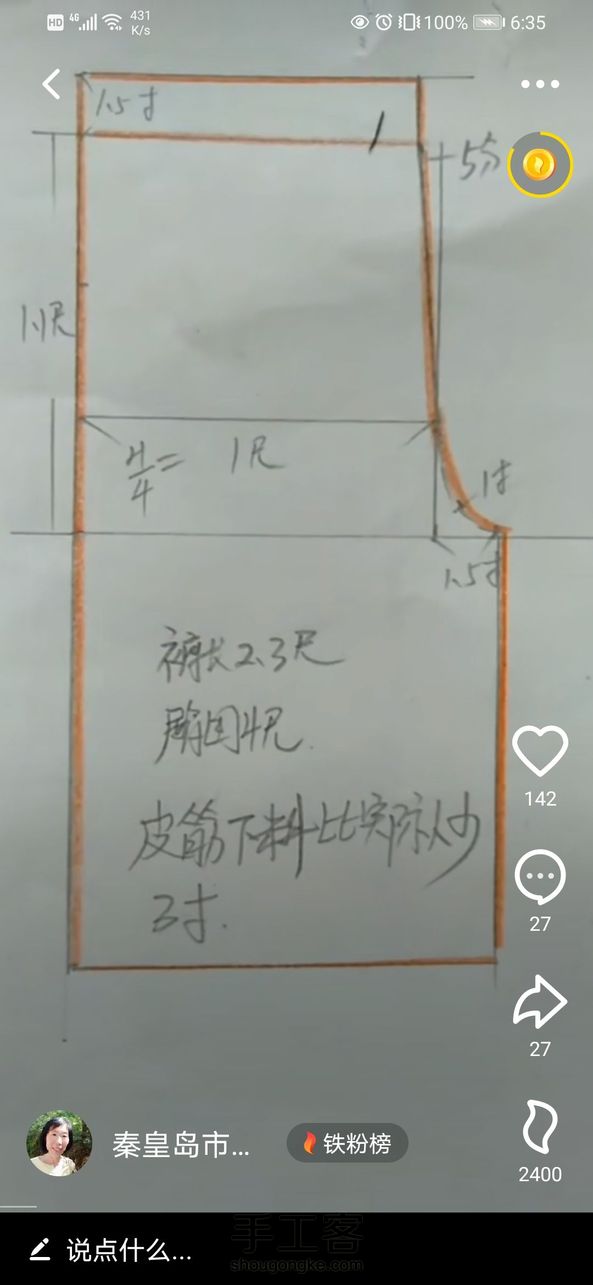 HD 4G 431 K/s 100% 6:35
1.5寸
5分
1.1尺
H/4= 1尺
1寸
1.5寸
裤长2.3尺
臀围4尺.
皮筋下料比实际少
3寸.
142
27
27
2400
秦皇岛市...
铁粉榜
说点什么...
手工客
shougongke.com